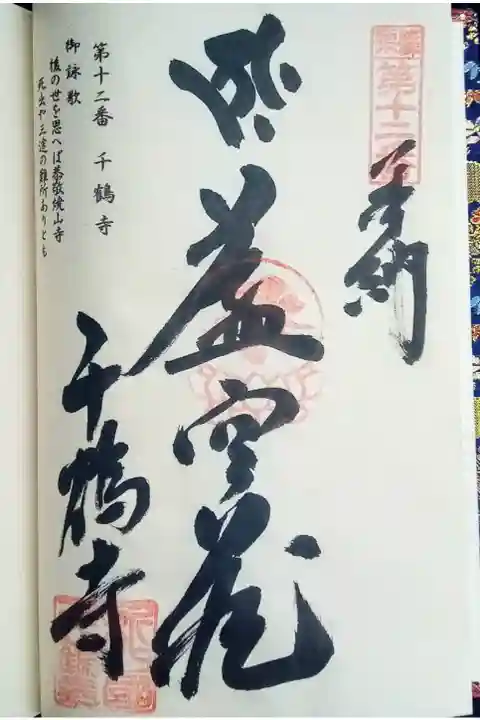 第十二番
奉納
虚空蔵
第十二番 千鶴寺
御詠歌
後の世を思へば恭敬焼山寺
死出や三途の難所ありとも
千鶴寺